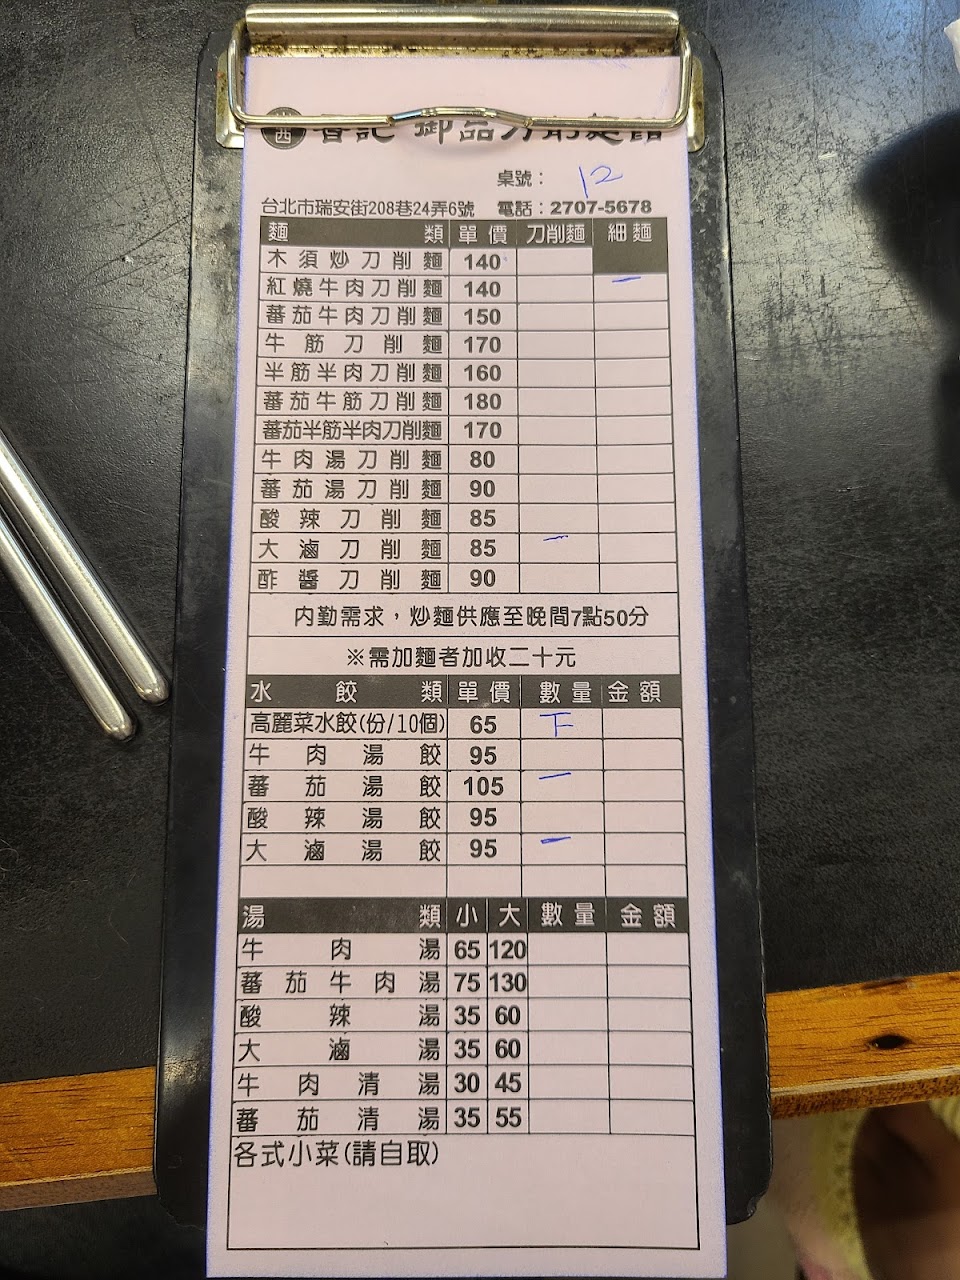 山西 晉記 御品刀削麵館
桌號： 12
台北市瑞安街208巷24弄6號 電話：2707-5678
麵類 單價 刀削麵 細麵
木須炒刀削麵 140
紅燒牛肉刀削麵 140 一
蕃茄牛肉刀削麵 150
牛筋刀削麵 170
半筋半肉刀削麵 160
蕃茄牛筋刀削麵 180
蕃茄半筋半肉刀削麵 170
牛肉湯刀削麵 80
蕃茄湯刀削麵 90
酸辣刀削麵 85
大滷刀削麵 85 一
酢醬刀削麵 90
內勤需求，炒麵供應至晚間7點50分
※需加麵者加收二十元
水餃類 單價 數量 金額
高麗菜水餃(份/10個) 65 下
牛肉湯餃 95
蕃茄湯餃 105 一
酸辣湯餃 95
大滷湯餃 95 一
湯類 小 大 數量 金額
牛肉湯 65 120
蕃茄牛肉湯 75 130
酸辣湯 35 60
大滷湯 35 60
牛肉清湯 30 45
蕃茄清湯 35 55
各式小菜(請自取)